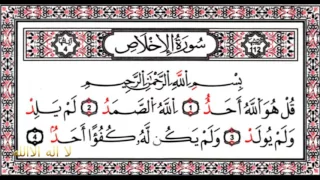 سُورَةُ الْإِخْلَاصِ
بِسْمِ اللَّهِ الرَّحْمَٰنِ الرَّحِيمِ
قُلْ هُوَ اللَّهُ أَحَدٌ ١ اللَّهُ الصَّمَدُ ٢ لَمْ يَلِدْ
وَلَمْ يُولَدْ ٣ وَلَمْ يَكُن لَّهُ كُفُوًا أَحَدٌ ٤
لا اله الا الله